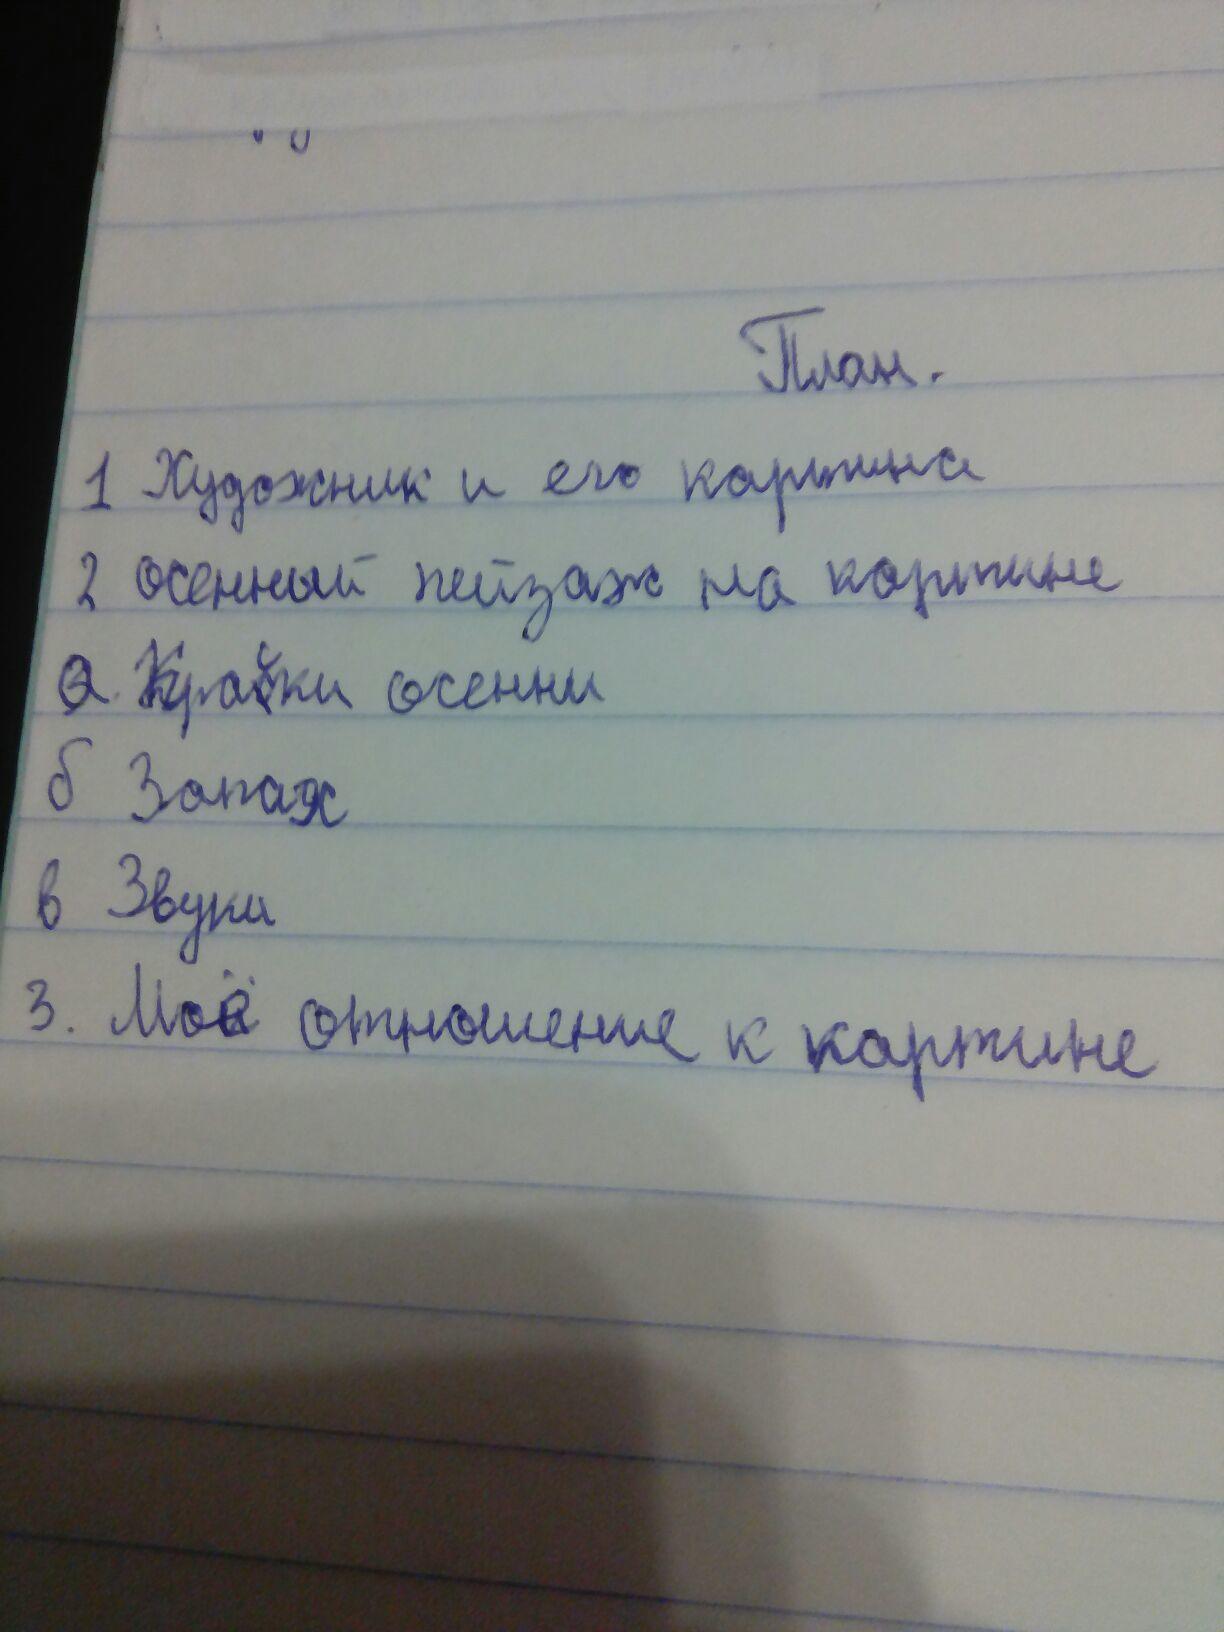 План.
1 Художник и его картина
2 осенный пейзаж на картине
а. Краски осенни
б Запах
в Звуки
3. Моё отношение к картине